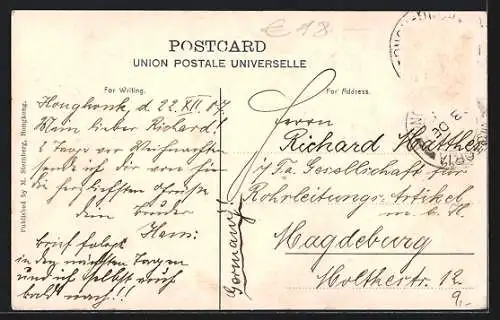 € 18
POSTCARD
UNION POSTALE UNIVERSELLE
For Writing.
For Address.
Published by M. Sternberg, Hongkong.
Hongkonk, d 22.XII.07.
Mein lieber Richard!
2 Tage vor Weihnachten
sende ich dir von hier
die herzlichsten Grüsse
dein Bruder
Hans.
Brief folgt
in den nächsten Tagen
und ich selbst auch
bald nach!!
Herrn
Richard Matthes
i/Fa. Gesellschaft für
Rohrleitungs-Artikel
m. b. H.
Magdeburg
Moltkestr. 12
Germany!
9,-